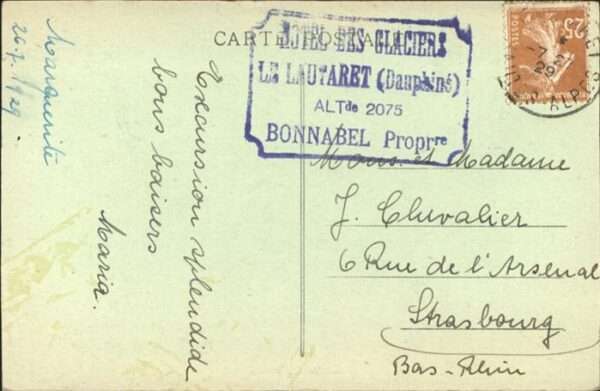 CARTE POSTALE
HOTEL DES GLACIERS
LE LAUTARET (Dauphiné)
ALTde 2075
BONNABEL Proprre
25c
POSTES
Marguerite
26.7.1929
Excursion splendide
bons baisers
Maria.
Mons. et Madame
J. Chevalier
6 Rue de l'Arsenal
Strasbourg
Bas-Rhin